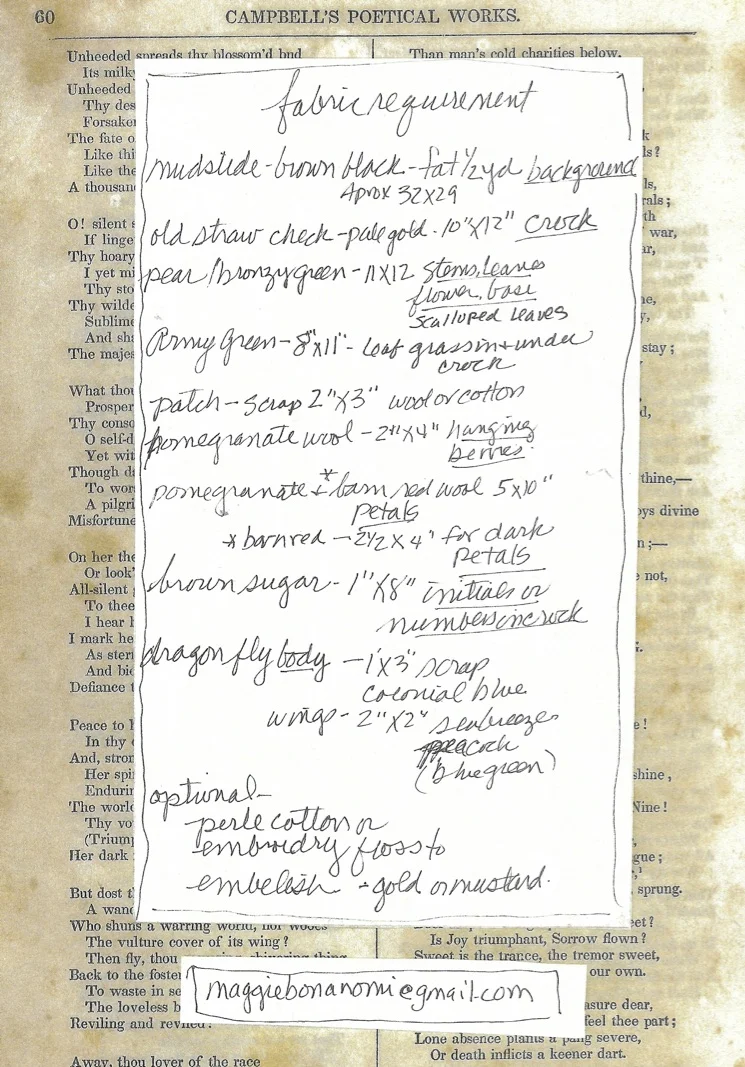 60 CAMPBELL'S POETICAL WORKS.
Unheeded spreads thy blossom'd bud
Its milky
Unheeded
Thy des
Forsaken
The fate o
Like thi
Like the
A thousand
O! silent s
If linge
Thy hoary
I yet mi
Thy sto
Thy wilde
Sublime
And sha
The majes
What thou
Prosper
Thy consc
O self-d
Yet wit
Though d
To wor
A pilgri
Misfortune
On her the
Or look'
All-silent
To thee
I hear h
I mark he
As stern
And bid
Defiance t
Peace to h
In thy
And, stron
Her spi
Endurin
The world
Thy vo
(Triump
Her dark
But dost t
A wand
Who shuns a warring world, nor wooes
The vulture cover of its wing?
Then fly, thou shivering thing
Back to the foster
To waste in se
The loveless b
Reviling and reviled!
Away, thou lover of the race
Than man's cold charities below.
k
ls?
ls,
rals;
th
war,
ar,
ne,
y,
stay;
d,
thine,—
oys divine
n;—
e not,
s.
e!
shine,
Nine!
gue;
sprung.
eet?
Is Joy triumphant, Sorrow flown?
Sweet is the trance, the tremor sweet,
our own.
asure dear,
feel thee part;
Lone absence plants a pang severe,
Or death inflicts a keener dart.
fabric requirement
mudslide - brown black - fat 1/2 yd background
Aprox 32X29
old straw check - pale gold - 10"X12" crock
pear / bronzy green - 11X12 stems, leaves
flower, base
scalluped leaves
Army Green - 8"X11" - leaf grass in + under
crock
patch - scrap 2"X3" wool or cotton
pomegranate wool - 2"X4" hanging
berries.
pomegranate + * barn red wool 5x10"
petals
* barn red - 2 1/2 X 4" for dark
petals
brown sugar - 1"X8" initials or
numbers in crock
dragonfly body - 1"X3" scrap
colonial blue
wings - 2"X2" seabreeze
peacock
(blue green)
optional -
perle cotton or
embroidry floss to
embelish - gold or mustard.
maggiebonanomi@gmail.com